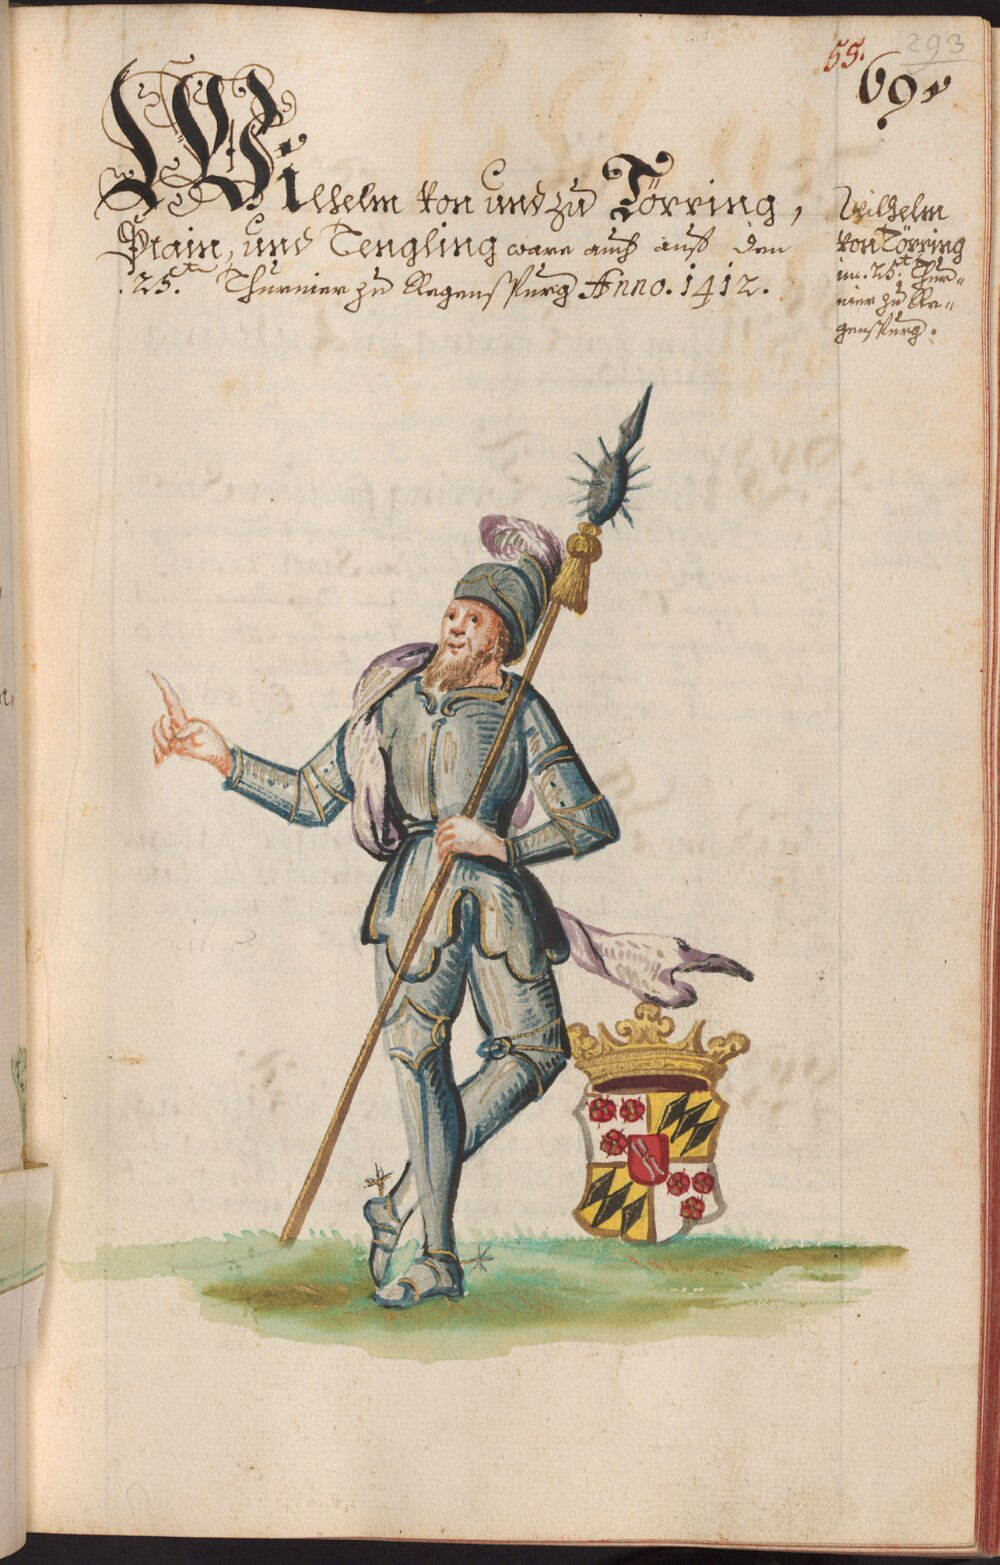 55.
293
69.
Wilhelm von und zu Törring,
Stain, und Tengling ware auch auf den
.25.ten Thurnier zu Regenspurg Anno. 1412.
Wilhelm
von Törring
im .25.ten Thur=
nier zu Re=
genspurg.